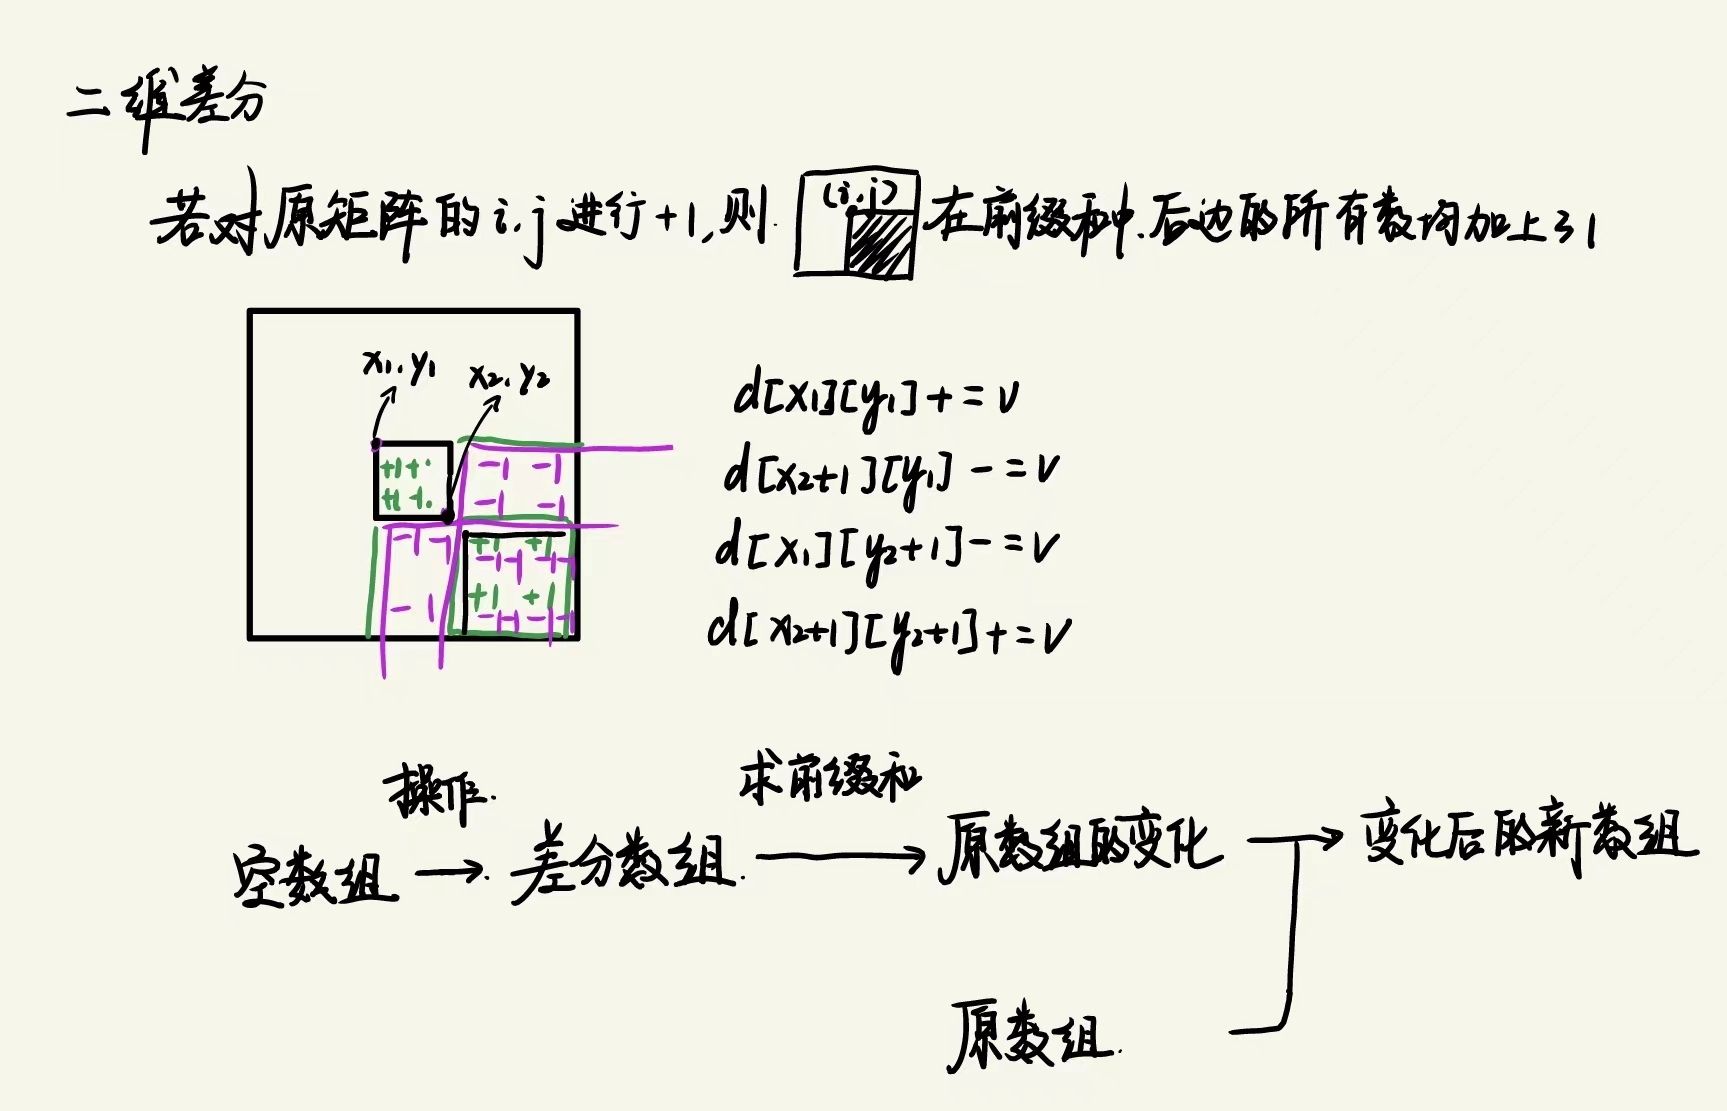 二维差分
若对原矩阵的i,j进行+1,则 (i,j) 在前缀和中.后边的所有数均加上了1
x1,y1
x2,y2
+1+
-1 -1
+1 +
-1 -1
-1 -1
+1 +1
-1 -1
-1
+1 +1
-1 -1
d[x1][y1]+=v
d[x2+1][y1]-=v
d[x1][y2+1]-=v
d[x2+1][y2+1]+=v
操作.
求前缀和
空数组 → 差分数组. → 原数组的变化 → 变化后的新数组
原数组.